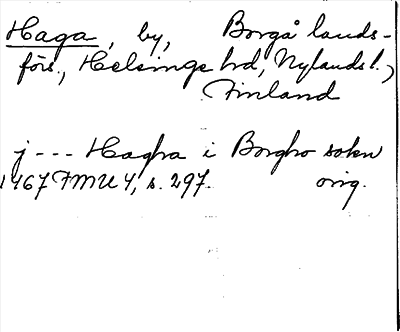 Haga, by, Borgå lands-
förs., Helsinge hd, Nylands l.,
Finland
j --- Hagha i Borgho sokn
1467 FMU 4, s. 297. orig.